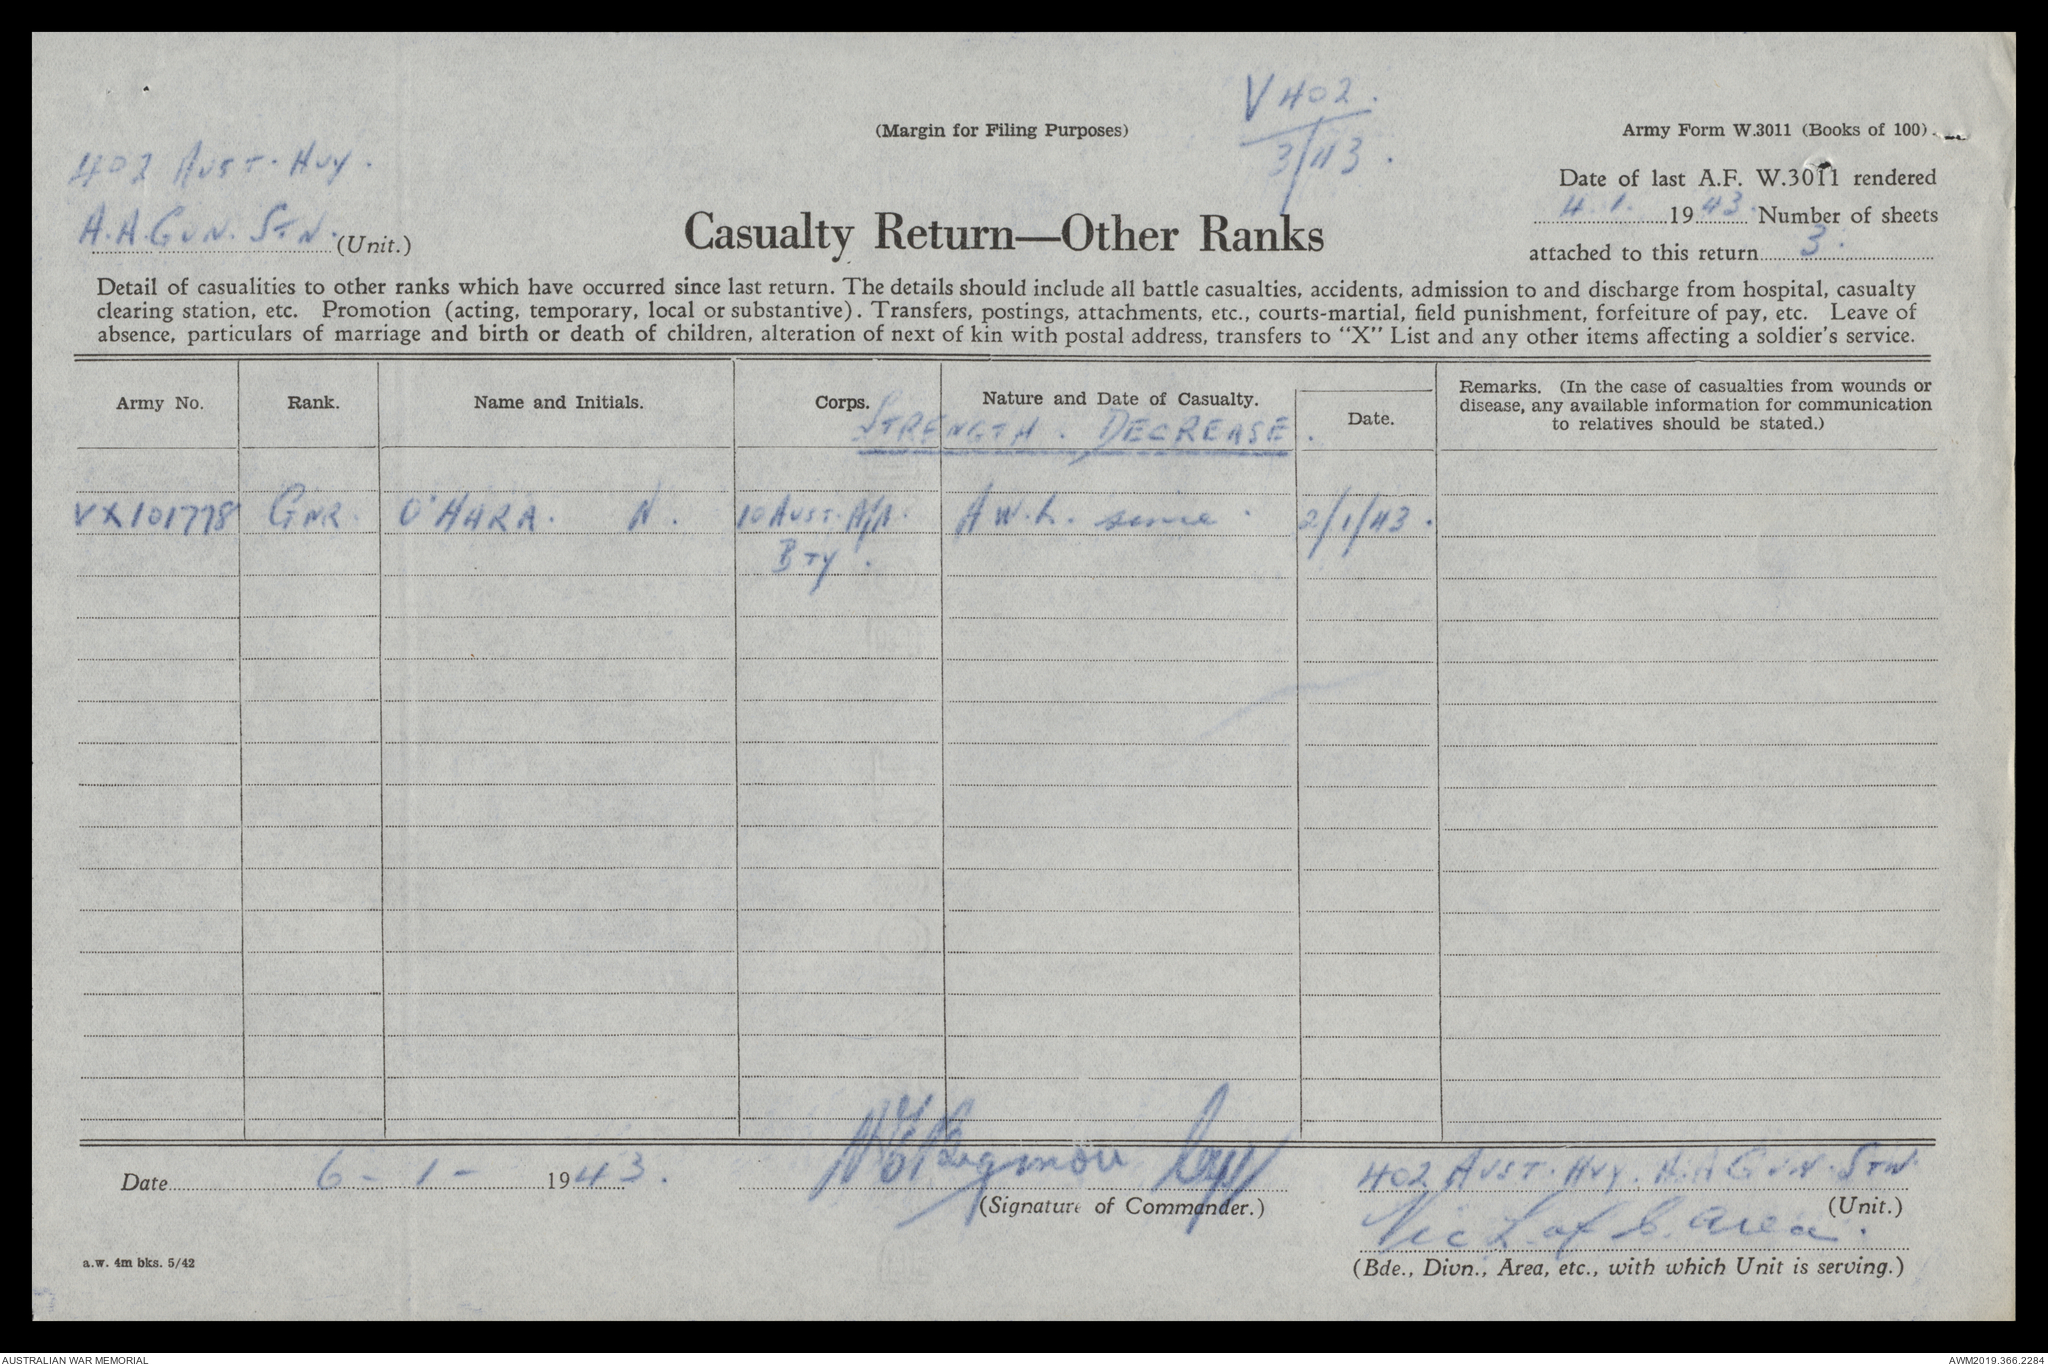 V 402.
3/43.
(Margin for Filing Purposes)
Army Form W.3011 (Books of 100).
402 AUST. HVY.
A.A. GUN. STN. (Unit.)
Casualty Return—Other Ranks
Date of last A.F. W.3011 rendered
4.1. 1943. Number of sheets
attached to this return 3.
Detail of casualities to other ranks which have occurred since last return. The details should include all battle casualties, accidents, admission to and discharge from hospital, casualty
clearing station, etc. Promotion (acting, temporary, local or substantive). Transfers, postings, attachments, etc., courts-martial, field punishment, forfeiture of pay, etc. Leave of
absence, particulars of marriage and birth or death of children, alteration of next of kin with postal address, transfers to "X" List and any other items affecting a soldier's service.
Army No. Rank. Name and Initials. Corps. Nature and Date of Casualty. Date. Remarks. (In the case of casualties from wounds or
disease, any available information for communication
to relatives should be stated.)
STRENGTH. DECREASE.
VX101778 GNR. O'HARA. N. 10 AUST. A/A. A.W.L. since. 2/1/43.
BTY.
Date 6-1- 1943.
(Signature of Commander.)
402 AUST. HVY. A.A GUN. STN.
(Unit.)
Vic L. of C. Area.
(Bde., Divn., Area, etc., with which Unit is serving.)
a.w. 4m bks. 5/42
AUSTRALIAN WAR MEMORIAL
AWM2019.366.2284